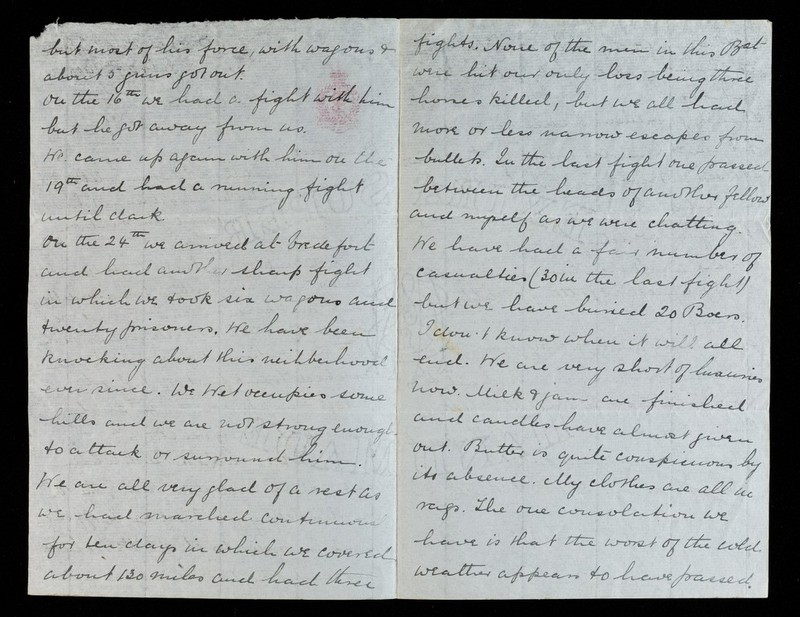 but most of his force, with wagons &
about 5 guns got out.
On the 16th we had a fight with him
but he got away from us.
We came up again with him on the
19th and had a running fight
until dark
On the 24th we arrived at Vredefort
and had another sharp fight
in which we took six wagons and
twenty prisoners. We have been
knocking about this neihberhood
ever since. De Wet occupies some
hills and we are not strong enough
to attack or surround him.
We are all very glad of a rest as
we had marched continuous
for ten days in which we covered
about 130 miles and had three
fights. None of the men in this Bat
were hit our only loss being three
horses killed, but we all had
more or less narrow escapes from
bullets. In the last fight one passed
between the heads of another fellow
and myself as we were chatting.
We have had a fair number of
casualties (30 in the last fight)
but we have buried 20 Boers.
I don't know when it will all
end. We are very short of luxuries
now. Milk & jam are finished
and candles have almost given
out. Butter is quite conspicuous by
its absence. My clothes are all in
rags. The one consolation we
have is that the worst of the cold
weather appears to have passed.